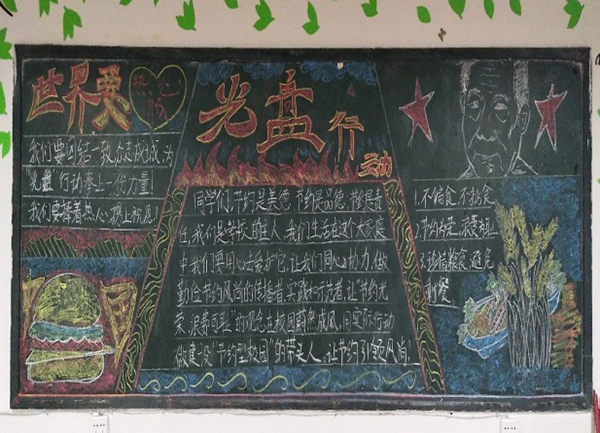 世界爱
热心肠
我们要团结一致,众志成城,为
"光盘"行动奉上一份力量!
我们要捧着热心,携上祝愿!
光盘行动
同学们,节约是美德,节约是品德,节约是责
任,我们是学校的主人,我们生活在这个大家庭
中我们要用心去爱护它,让我们同心协力,做
勤俭节约风尚的传播者,实践和示范者,让"节约光
荣,浪费可耻"的观念在校园蔚然成风,用实际行动
做建设"节约型校园"的带头人,让节约引领风尚!
1.不偏食,不挑食
2.节约为荣,浪费为耻
3.珍惜粮食,避免
剩餐.